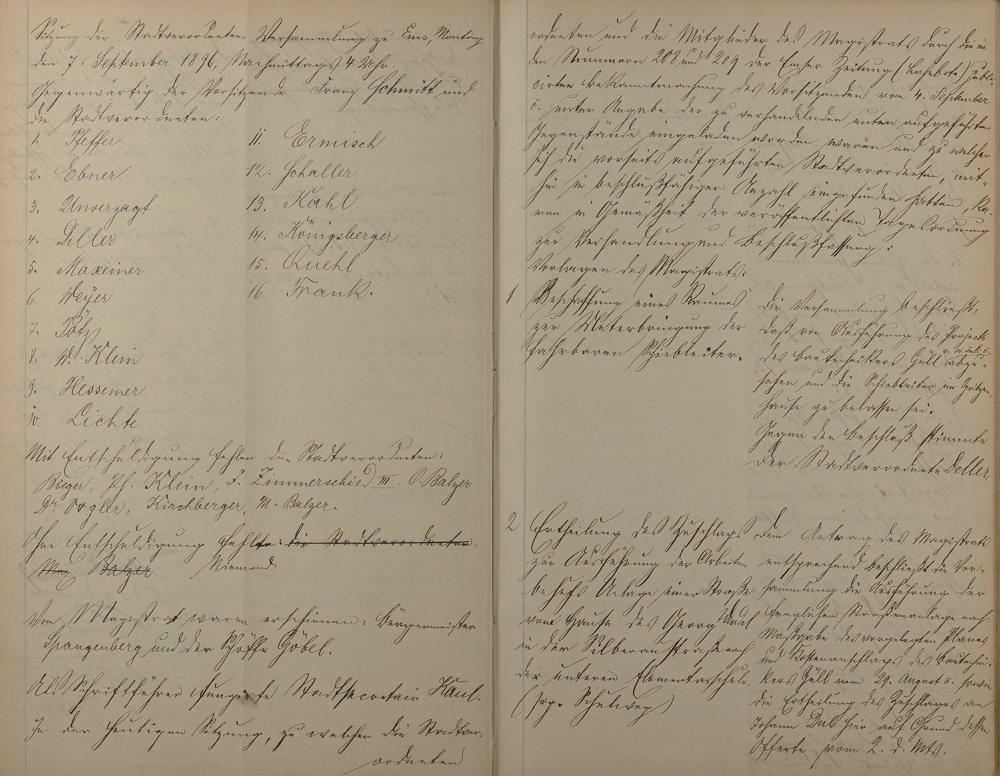 Sitzung der Stadtverordneten Versammlung zu Ems, Montag
den 7. September 1896, Nachmittags 4 Uhr.
Gegenwärtig der Vorsitzende Franz Schmitt und
die Stadtverordneten:
1. Pfeffer
2. Ebner
3. Unverzagt
4. Deller
5. Maxeiner
6. Weyer
7. Pötz
8. W. Klein
9. Hessemer
10. Lichte
11. Ermisch
12. Schaller
13. Kahl
14. Königsberger
15. Ruehl
16. Frank.
Mit Entschuldigung fehlen die Stadtverordneten:
Rieger, Ph. Klein, F. Zimmerschied III. O. Balzer
Dr Vogler, Kirchberger, M. Balzer.
Ohne Entschuldigung fehlte: die Stadtverordneten
Balzer Niemand
Vom Magistrat waren erschienen: Bürgermeister
Spangenberg und der Schöffe Göbel.
Als Schriftführer fungirte Stadtsecretair Kaul.
In der heutigen Sitzung, zu welcher die Stadtver-
ordneten
ordneten und die Mitglieder des Magistrats durch die in
den Nummern 208 und 209 der Emser Zeitung (Lahnbote) publi-
cirten Bekanntmachung des Vorsitzenden vom 4. September
c. unter Angabe der zu verhandelnden unten aufgeführten
Gegenstände eingeladen worden waren und zu welcher
sich die vorseits aufgeführten Stadtverordneten, mit-
hin in beschlußfähiger Anzahl eingefunden hatten, ka-
men in Gemäßheit der veröffentlichten Tagesordnung
zur Verhandlung und Beschlußfassung:
Vorlagen des Magistrats:
1 Beschaffung eines Raumes
zur Unterbringung der
fahrbaren Schiebleiter.
Die Versammlung beschließt,
daß von Ausführung des Projects
des Bautechnikers Güll abzu-
sehen und die Schiebleiter im Spritzen-
hause zu belassen sei.
Gegen den Beschluß stimmte
der Stadtverordnete Deller.
2 Ertheilung des Zuschlags
zur Ausführung der Arbeiten
behufs Anlage einer Straße
vom Hause des Georg Kaul
in der Silberaustraße nach
der unteren Elementarschule
(sog. Schulweg)
Dem Antrag des Magistrats
entsprechend beschließt die Ver-
sammlung die Ausführung der
fraglichen Straßenanlage nach
Maßgabe des vorgelegten Planes
und Kostenanschlags des Bautechni-
kers Güll vom 29. August c. sowie
die Ertheilung des Zuschlages an
Johann hier auf Grund dessen
Offerte vom 2. d. Mts.